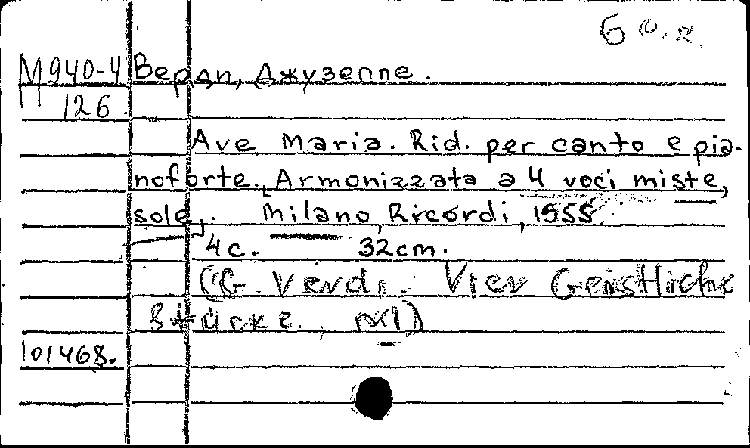 6 о.л.
М940-4 Верди, Джузеппе.
126
Ave Maria. Rid. per canto e pia-
noforte. [Armonizzata a 4 voci miste,
sole]. Milano, Ricordi, 1955.
4 c. 32cm.
(G. Verdi. Vier Geistliche
Stücke., №1)
101468.